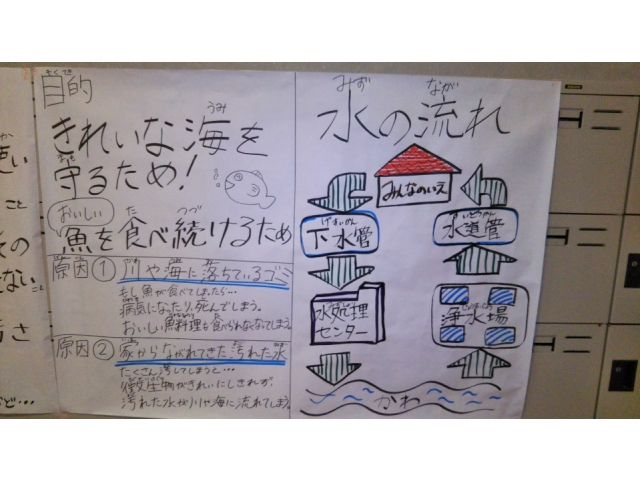 もくてき
目的
うみ
きれいな海を
まも
守るため!
おいしい
た つづ
魚を食べ続けるため
原因① 川や海に落ちているゴミ
もし魚が食べてしまったら…
病気になったり、死んでしまう。
おいしい魚料理も食べられなくなてしまう。
原因② 家からながれてきた汚れた水
たくさん汚してしまうと…
微生物がきれいにしきれず
汚れた水が川や海に流れてしまう。
みず なが
水の流れ
みんなのいえ
げすいかん
下水管
すいどうかん
水道管
水処理
センター
じょうすいじょう
浄水場
かわ
こと
ない
さ
ど…